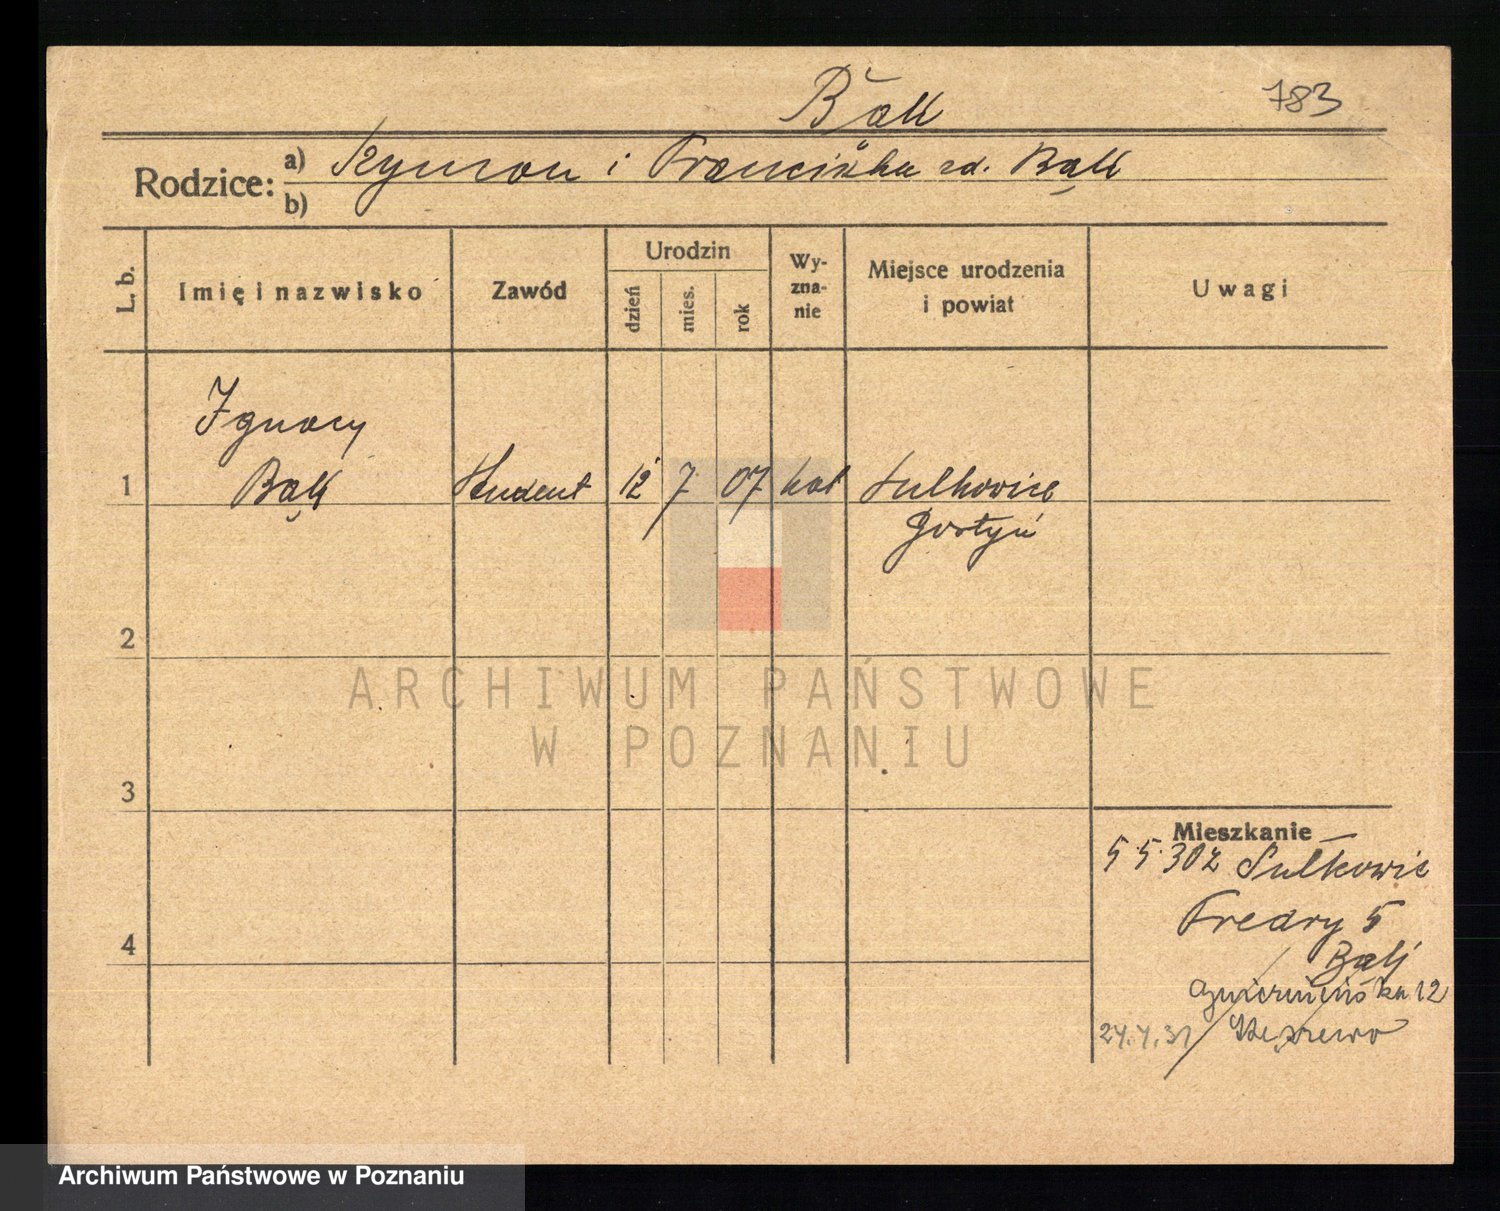 Bąk
783
Rodzice: a) Szymon i Franciszka zd. Bąk
b)
L. b.
Imię i nazwisko
Zawód
Urodzin
dzień
mies.
rok
Wy-
zna-
nie
Miejsce urodzenia
i powiat
Uwagi
Ignacy
1 Bąk student 12 7 07 kat Sulkowice
Gostyń
2
ARCHIWUM PAŃSTWOWE
W POZNANIU
3
Mieszkanie
5.5.30 z Sułkowic
Fredry 5
Bąk
12
4
24.4.31
Archiwum Państwowe w Poznaniu